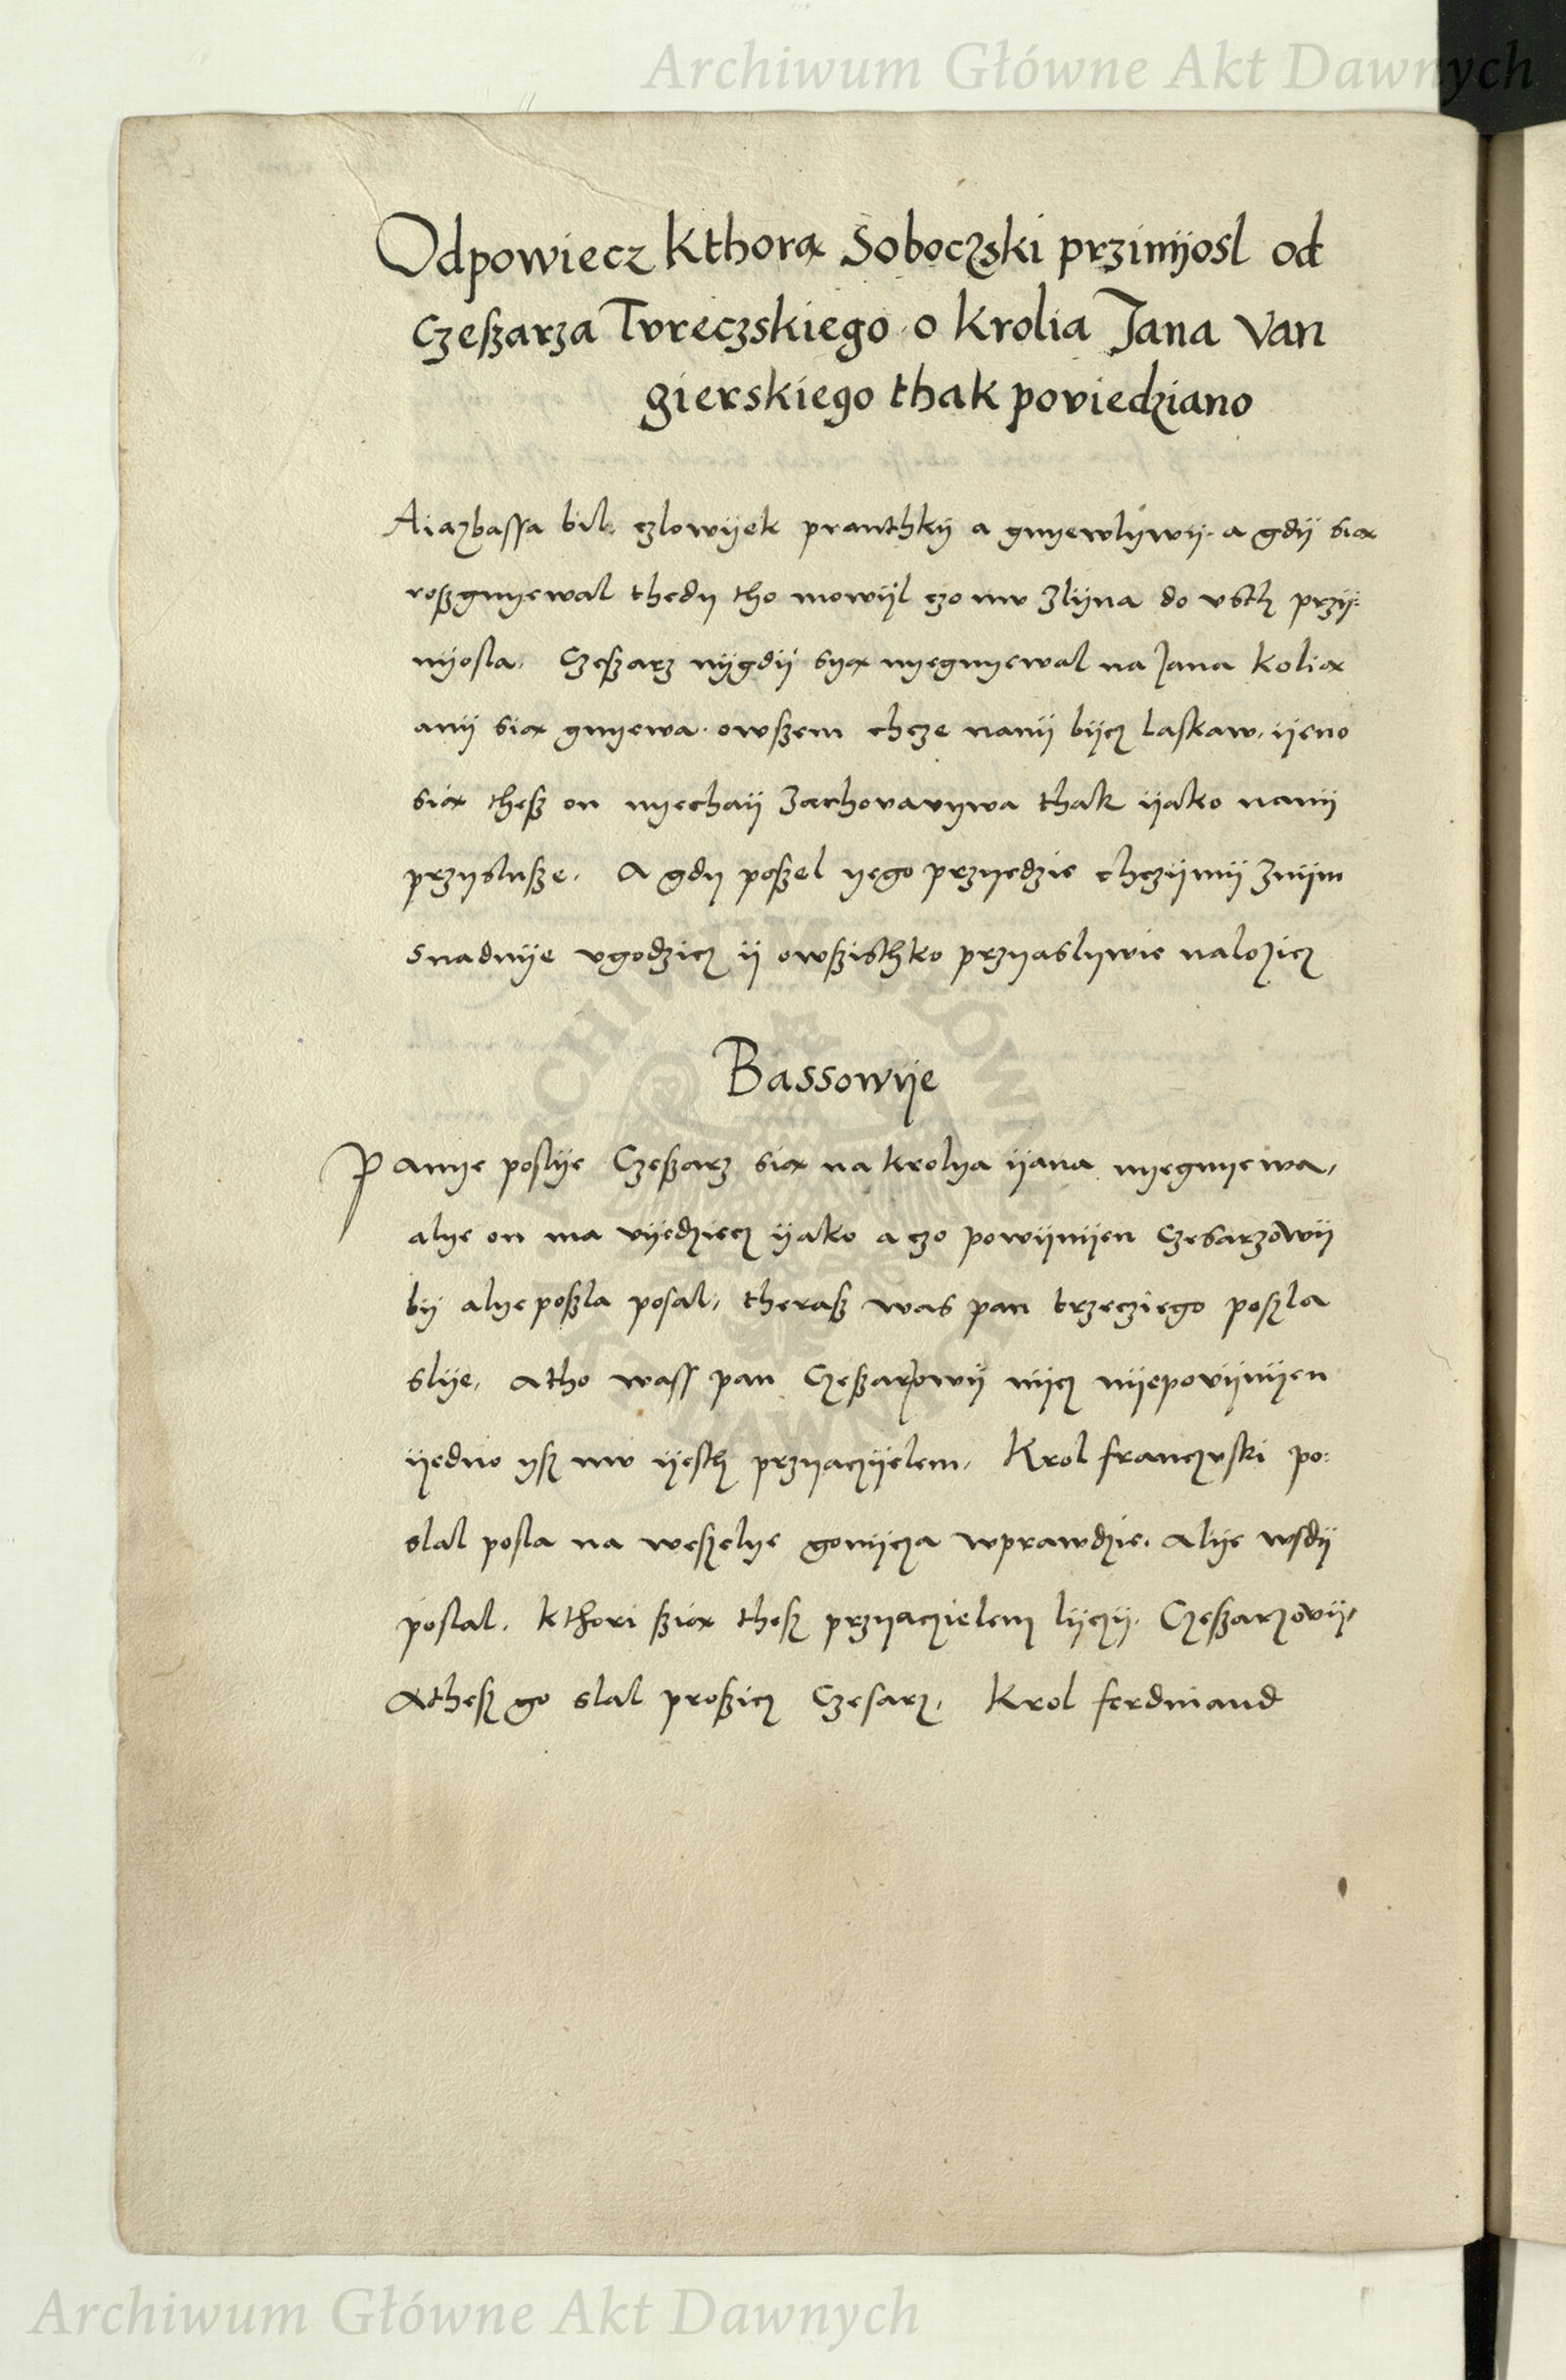 Archiwum Główne Akt Dawnych
Odpowiecz Kthorą Soboczski przinyosl od
Czeszarza Tvreczskiego o Krolia Jana Van
gierskiego thak poviedziano
Aiazbassa bil czlowyek pranthky a gnyewlywy. a gdy sią
roszgnyewal thedy tho mowyl czo mv zlyna do vsth przy:
nyosla. Czeszarz nygdy syą nyegnyewal na Jana Kolią
any sią gnyewa. owszem chcze nany bycz laskaw, yeno
sią thesz on nyechay zachovavywa thak yako nany
przyslusze. A gdy poszel yego przyedzie chczymy znym
snadnye vgodzicz y owszisthko przyaslywie nalozicz
Bassowye
Panye poslye Czeszarz sią na krolya yana nyegnyewa,
alye on ma vyedziecz yako a czo powynyen Czesarzowy
by alye poszla posal, therasz was pan trzeciego poszla
slye, atho wass pan Czeszarzowy nycz nyepovynyen
yedno ysz mv yesth przyaczyelem, Krol franczvski po:
slal posla na weszelye gonycza wprawdzie. Alye wsdy
poslal. kthori szią thesz przyaczielem lyczy. Czeszarzovy,
Athesz go slal proszicz Czesarz, Krol ferdinand
Archiwum Główne Akt Dawnych